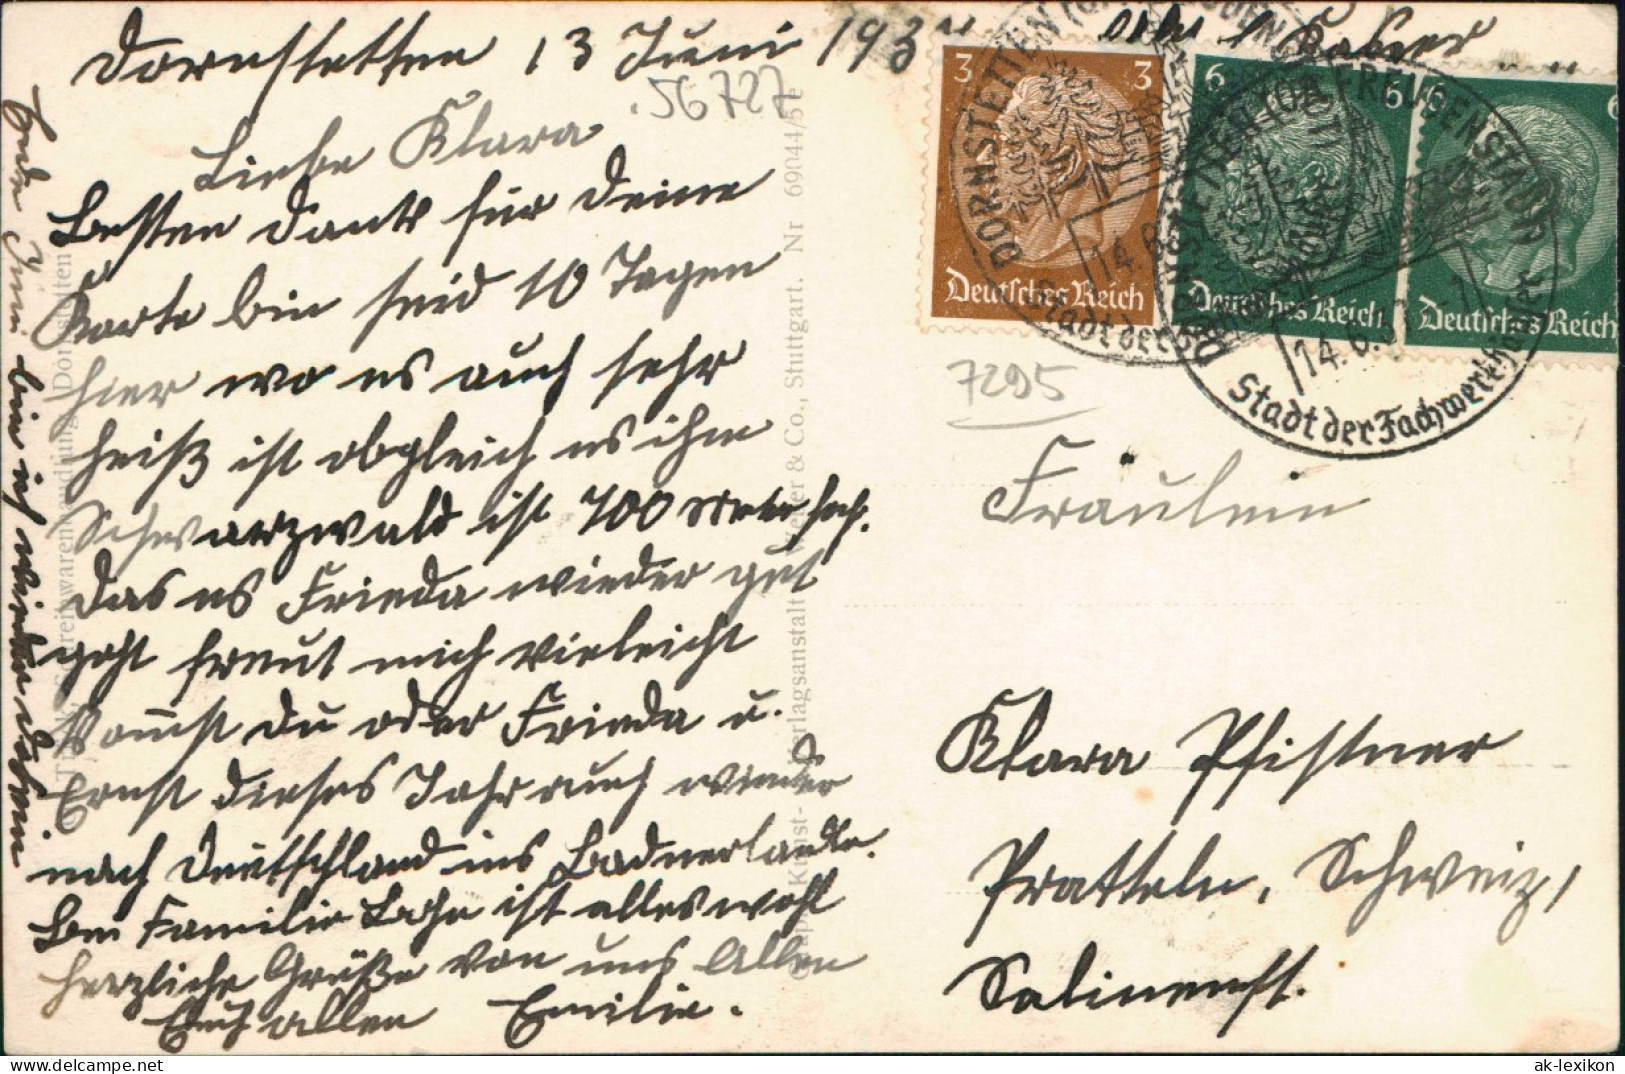 Dornstetten 13 Juni 193
56727
Liebe Klara
Besten Dank für Deine
Karte bin seid 10 Tagen
hier wo es auch sehr
heiß ist obgleich es ihm
Schwarzwald ist 700 Meter hoch.
Das es Frieda wieder gut
geht freut mich vieleicht
kommst Du oder Frieda u.
Ernst dieses Jahr auch wieder
nach Deutschland ins Badnerlandle.
Bei Familie ist alles wohl
herzliche Grüße von uns Allen
Euch allen Emilie.
Ende Juni bin ich wieder daheim
Schreibwarenhandlung, Dornstetten
Kunst- Verlagsanstalt & Co., Stuttgart. Nr 69044/5
3 3
Deutsches Reich
6 6
Deutsches Reich
6 6
Deutsches Reich
DORNSTETTEN
14.6.
Stadt der
DORNSTETTEN VOR FREUDENSTADT
14.6.
Stadt der Fachwerkhäuser
7295
Fräulein
Klara Pfistner
Pratteln, Schweiz,
ak-lexikon